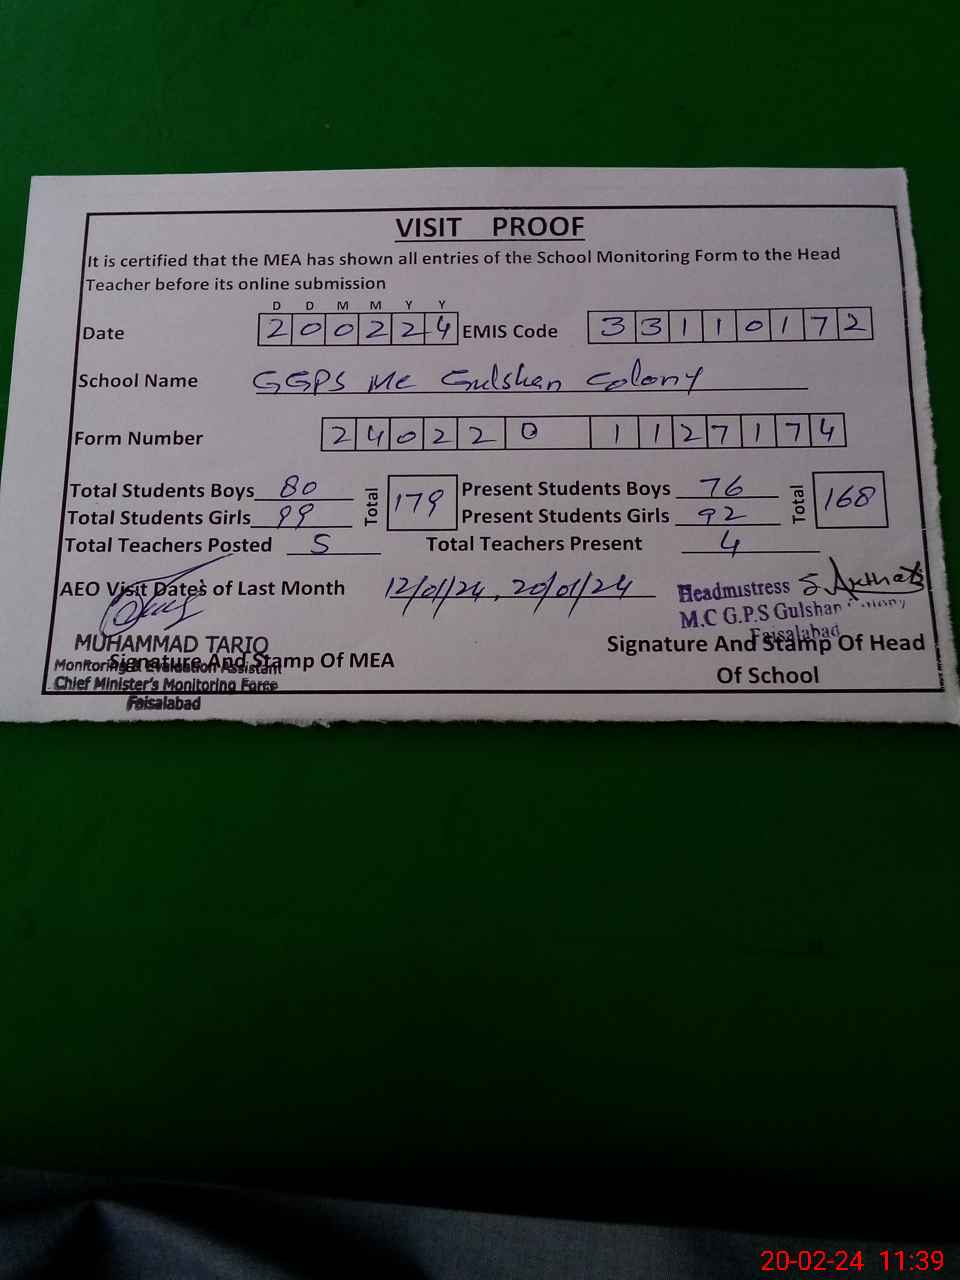 VISIT PROOF
It is certified that the MEA has shown all entries of the School Monitoring Form to the Head
Teacher before its online submission
D D M M Y Y
Date 2 0 0 2 2 4 EMIS Code 3 3 1 1 0 1 7 2
School Name GGPS MC Gulshan Colony
Form Number 2 4 0 2 2 0 1 1 2 7 1 7 4
Total Students Boys 80 Total 179 Present Students Boys 76 Total 168
Total Students Girls 99 Present Students Girls 92
Total Teachers Posted 5 Total Teachers Present 4
AEO Visit Dates of Last Month 12/01/24, 20/01/24
Headmistress
M.C G.P.S Gulshan Colony
Faisalabad
MUHAMMAD TARIQ
Signature And Stamp Of MEA
Monitoring & Evaluation Assistant
Chief Minister's Monitoring Force
Faisalabad
Signature And Stamp Of Head
Of School
20-02-24 11:39